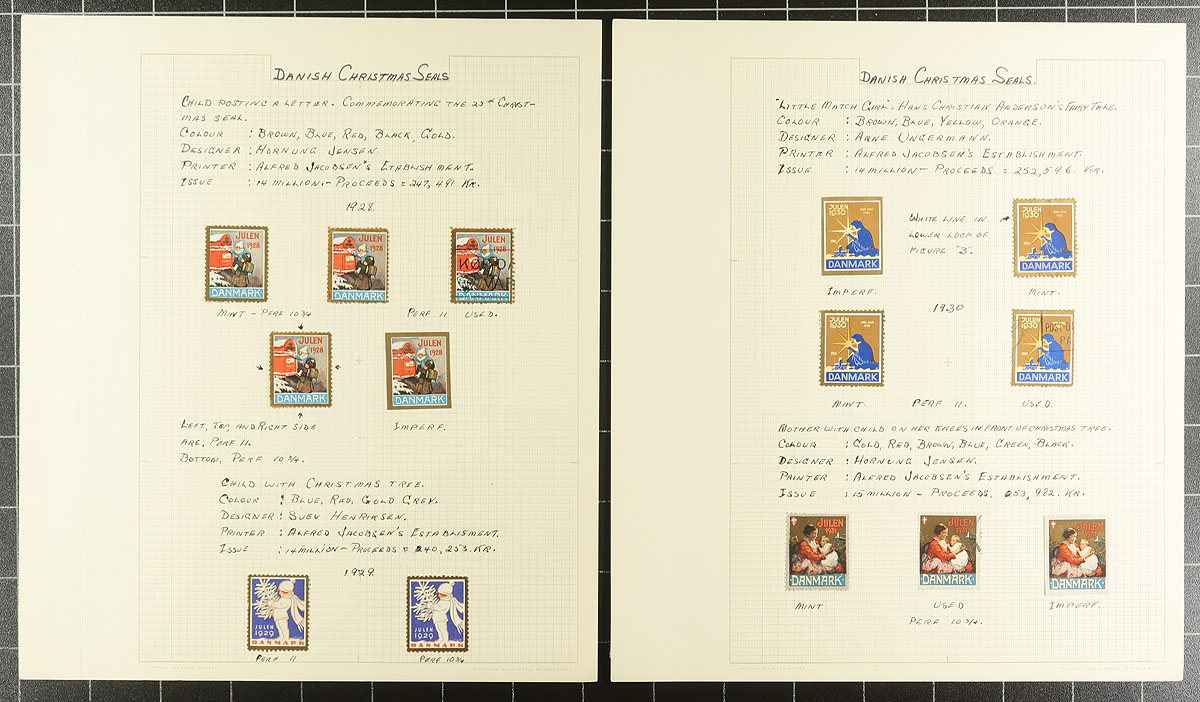 DANISH CHRISTMAS SEALS
CHILD POSTING A LETTER. COMMEMORATING THE 25th CHRIST-
MAS SEAL.
COLOUR : BROWN, BLUE, RED, BLACK, GOLD.
DESIGNER : HORNUNG JENSEN.
PRINTER : ALFRED JACOBSEN'S ETABLISHMENT.
ISSUE : 14 MILLION.- PROCEEDS = 247,491 KR.
1928.
JULEN
1928
DANMARK
JULEN
1928
DANMARK
JULEN
1928
DANMARK
MINT - PERF 10 3/4
PERF 11 USED.
JULEN
1928
DANMARK
JULEN
1928
DANMARK
LEFT, TOP, AND RIGHT SIDE
ARE, PERF 11.
BOTTOM, PERF 10 3/4.
IMPERF.
CHILD WITH CHRISTMAS TREE.
COLOUR : BLUE, RED, GOLD GREY.
DESIGNER : SVEV HENRIKSEN.
PRINTER : ALFRED JACOBSEN'S ESTABLISMENT.
ISSUE : 14 MILLION - PROCEEDS = 240,253 KR.
1929.
JULEN
1929
DANMARK
JULEN
1929
DANMARK
PERF 11
PERF 10 3/4
PRINTED AND MADE IN ENGLAND
DANISH CHRISTMAS SEALS.
"LITTLE MATCH GIRL". HANS CHRISTIAN ANDERSON'S FAIRY TALE.
COLOUR : BROWN, BLUE, YELLOW, ORANGE.
DESIGNER : ARNE UNGERMANN.
PRINTER : ALFRED JACOBSEN'S ESTABLISHMENT.
ISSUE : 14 MILLION - PROCEEDS = 252,596 KR.
JULEN
1930
DANMARK
WHITE LINE IN
LOWER LOOP OF
FIGURE "3".
JULEN
1930
DANMARK
IMPERF.
MINT.
1930
JULEN
1930
DANMARK
JULEN
1930
DANMARK
MINT. PERF 11. USED.
MOTHER WITH CHILD ON HER KNEES IN FRONT OF CHRISTMAS TREE.
COLOUR : GOLD, RED, BROWN, BLUE, GREEN, BLACK.
DESIGNER : HORNUNG JENSEN.
PRINTER : ALFRED JACOBSEN'S ESTABLISHMENT.
ISSUE : 15 MILLION - PROCEEDS, 253,982. KR.
JULEN
1931
DANMARK
JULEN
1931
DANMARK
JULEN
1931
DANMARK
MINT
USED
IMPERF.
PERF 10 3/4.
PRINTED AND MADE IN ENGLAND